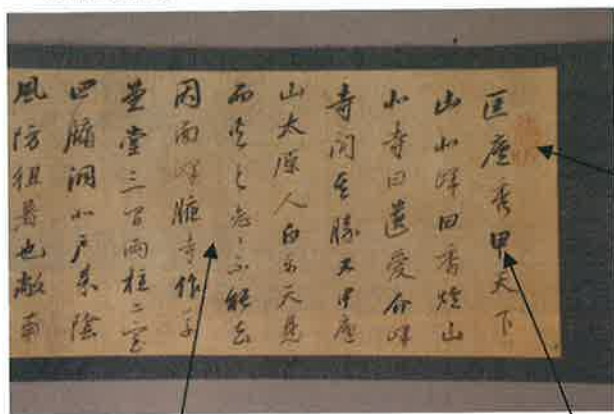 匡廬秀甲天下
山北峰曰香爐山
北寺曰遺愛介峰
寺間其勝又甲廬
山太原人白樂天見
而愛之戀々不能去
因面峰腋寺作草
堂堂三間兩柱二室
四牖洞北戶來陰
風防徂暑也敞南